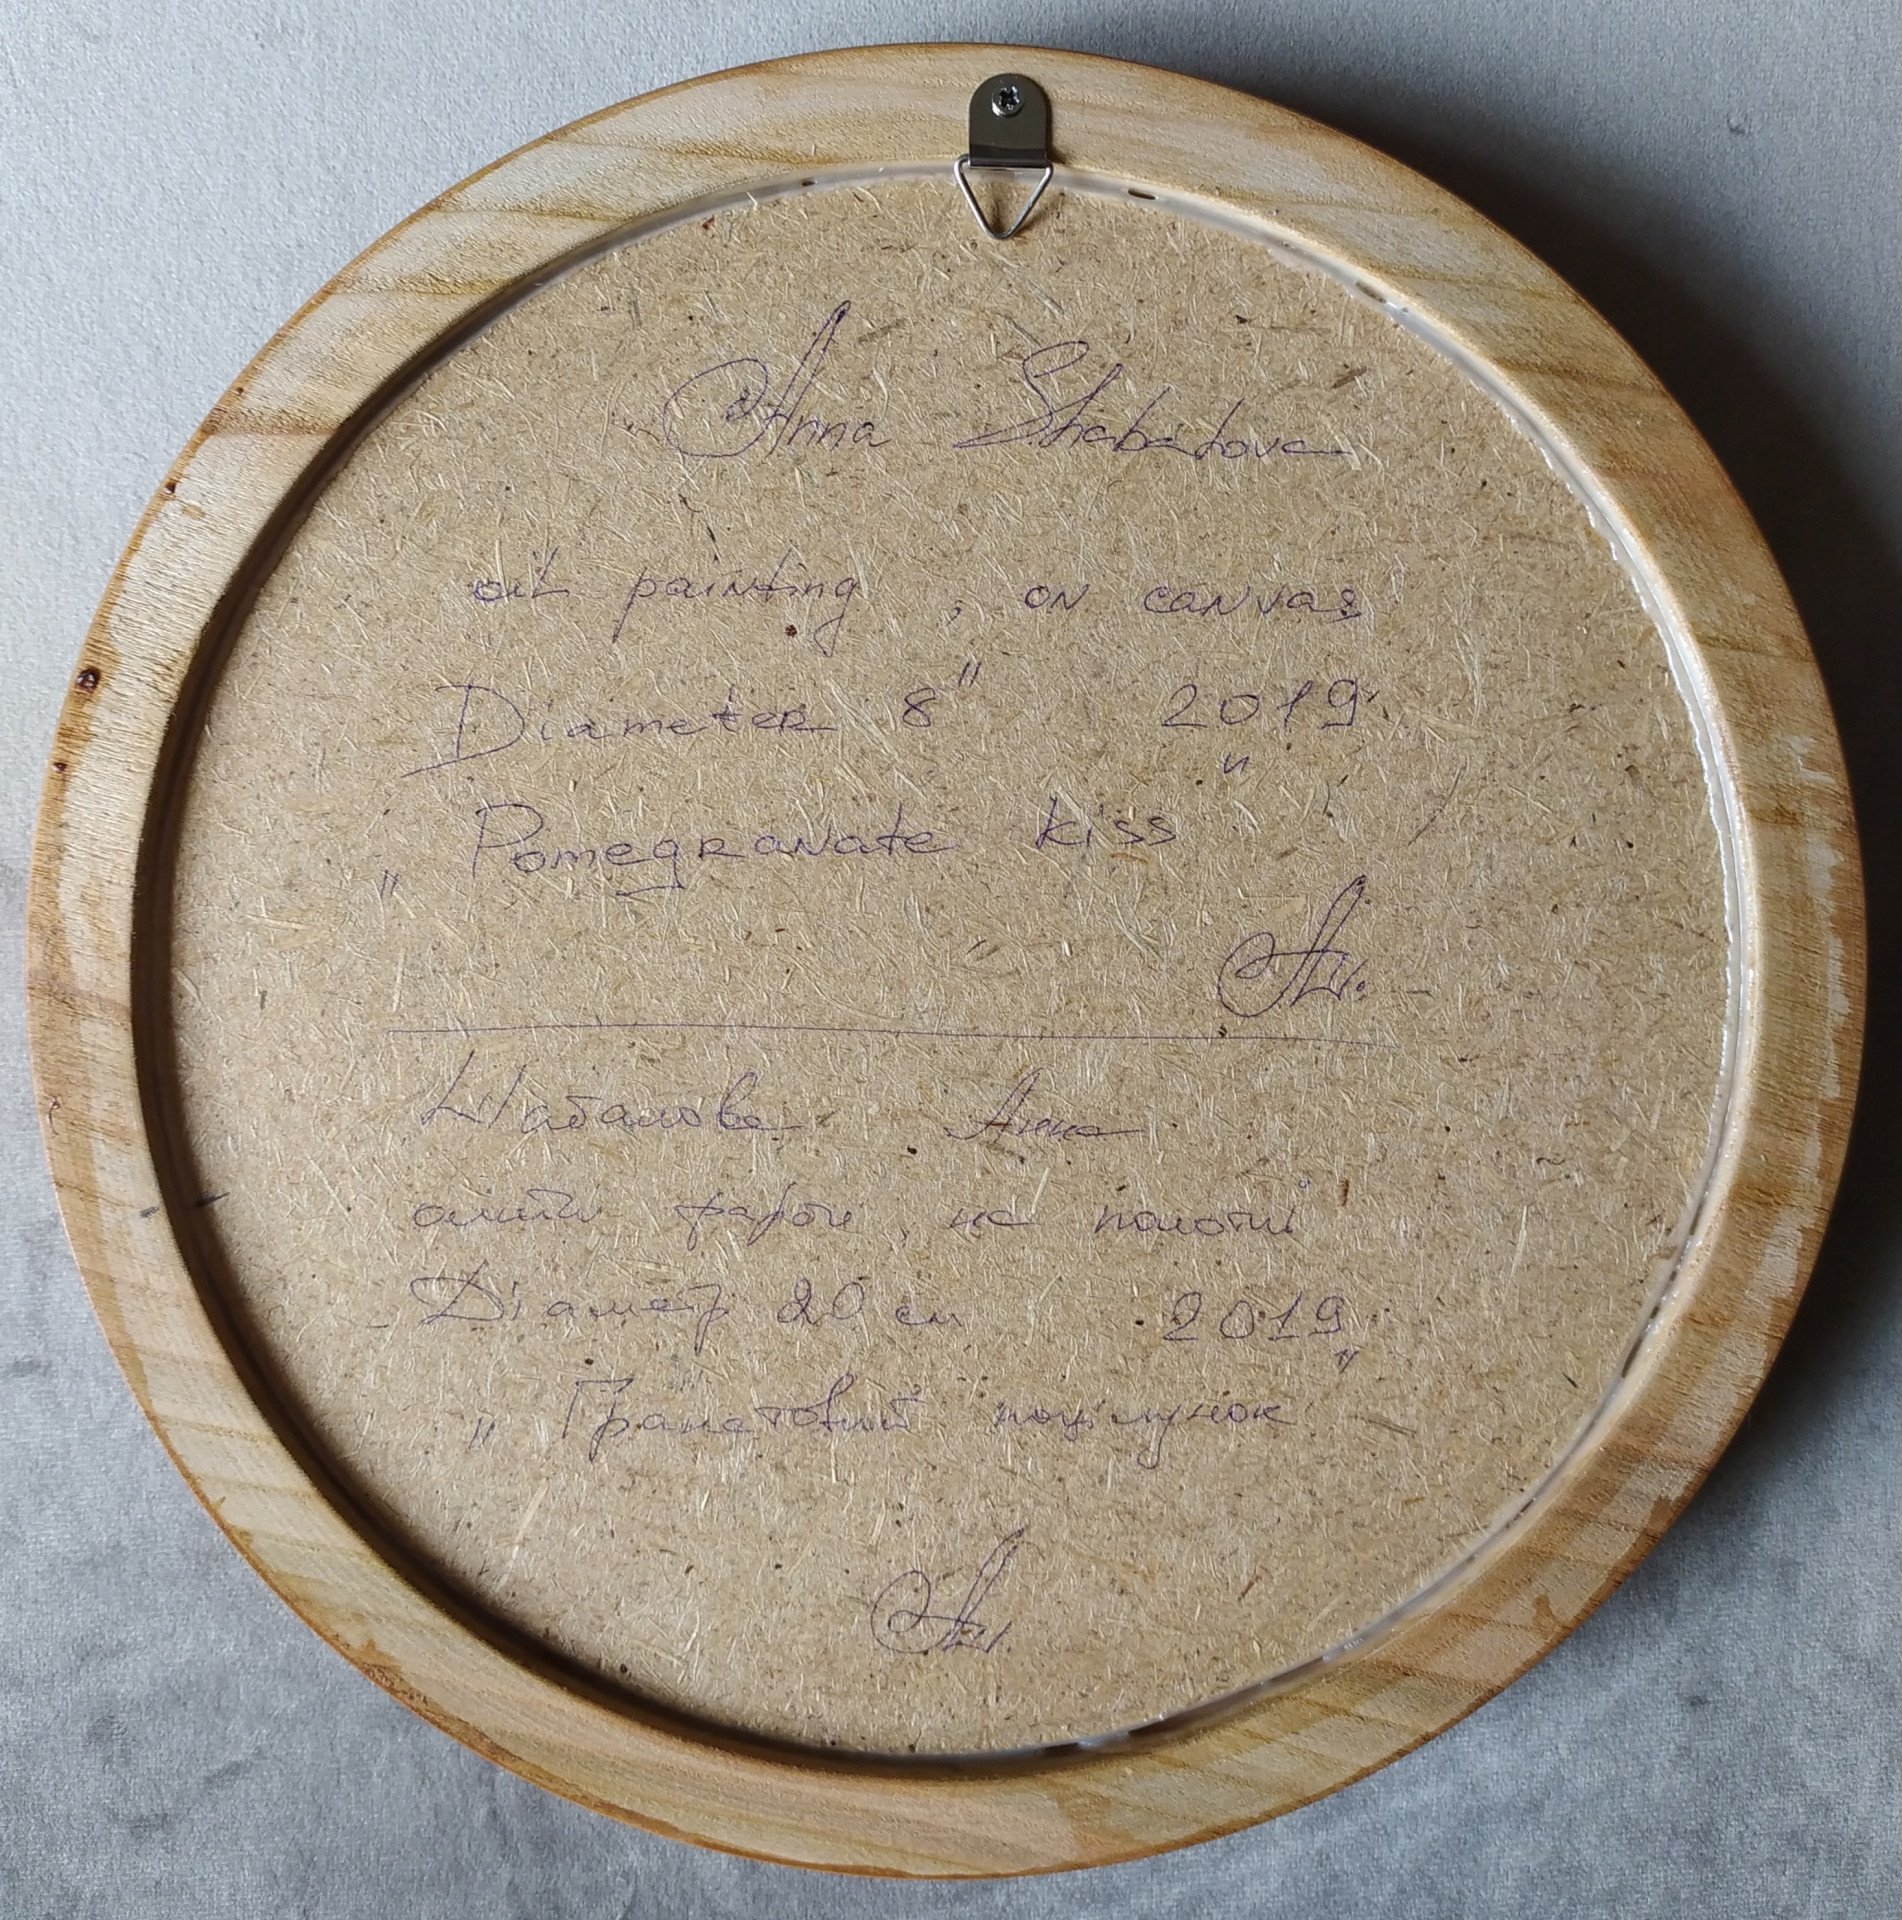 Anna Shabatova
oil painting, on canvas
Diameter 8" 2019
„Pomegranate kiss"
АШ.
Шабатова Анна
олійні фарби, на полотні
Діаметр 20 см 2019
„Гранатовий поцілунок"
АШ.